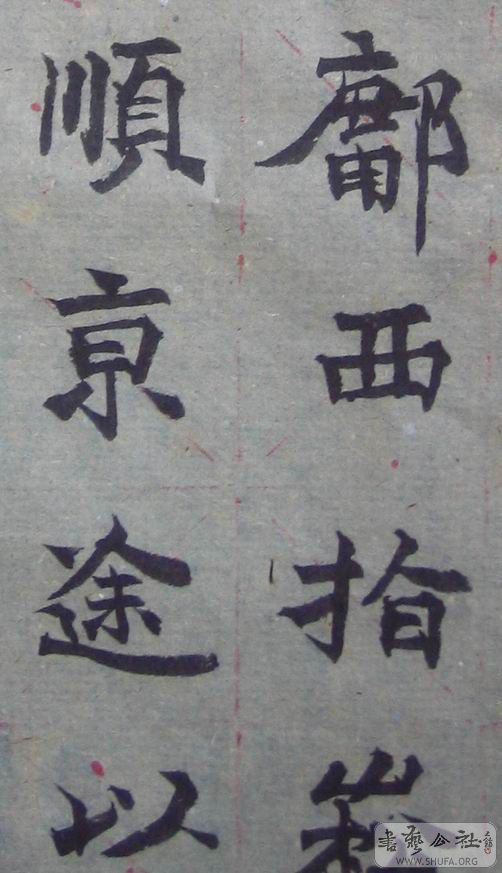 鄘西指
順亰途以
書藝公社
WWW.SHUFA.ORG